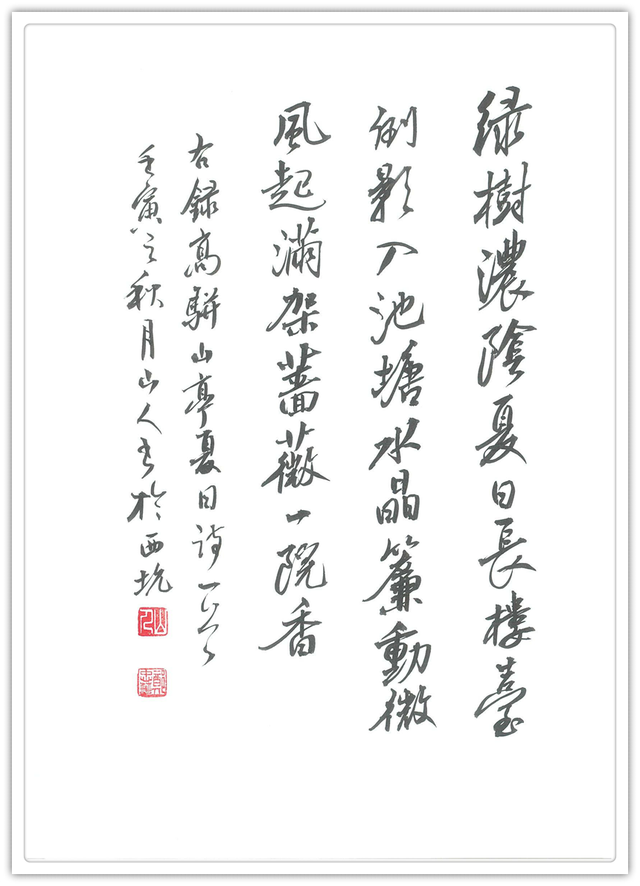 緑樹濃陰夏日長樓臺
倒影入池塘水晶簾動微
風起滿架薔薇一院香
右録高駢山亭夏日詩一首
壬寅之秋月山人书於西坑
山人